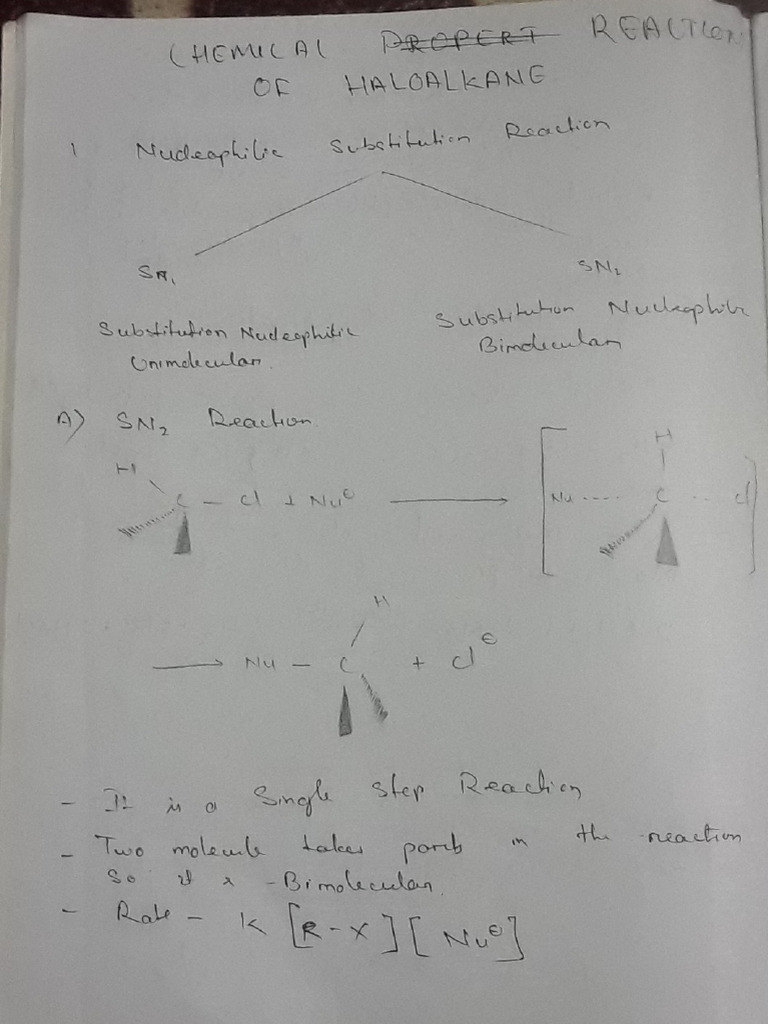 CHEMICAL PROPERT REACTION
OF HALOALKANE
1 Nucleophilic Substitution Reaction
SN1 SN2
Substitution Nucleophilic Substitution Nucleophilic
Unimolecular. Bimolecular
A) SN2 Reaction
H H
C – Cl + Nu⊖ → [Nu ---- C -- Cl]
H
→ Nu – C + Cl⊖
- It is a Single step Reaction
- Two molecule takes part in the reaction
So it is -Bimolecular.
- Rate - K [R-X][Nu⊖]